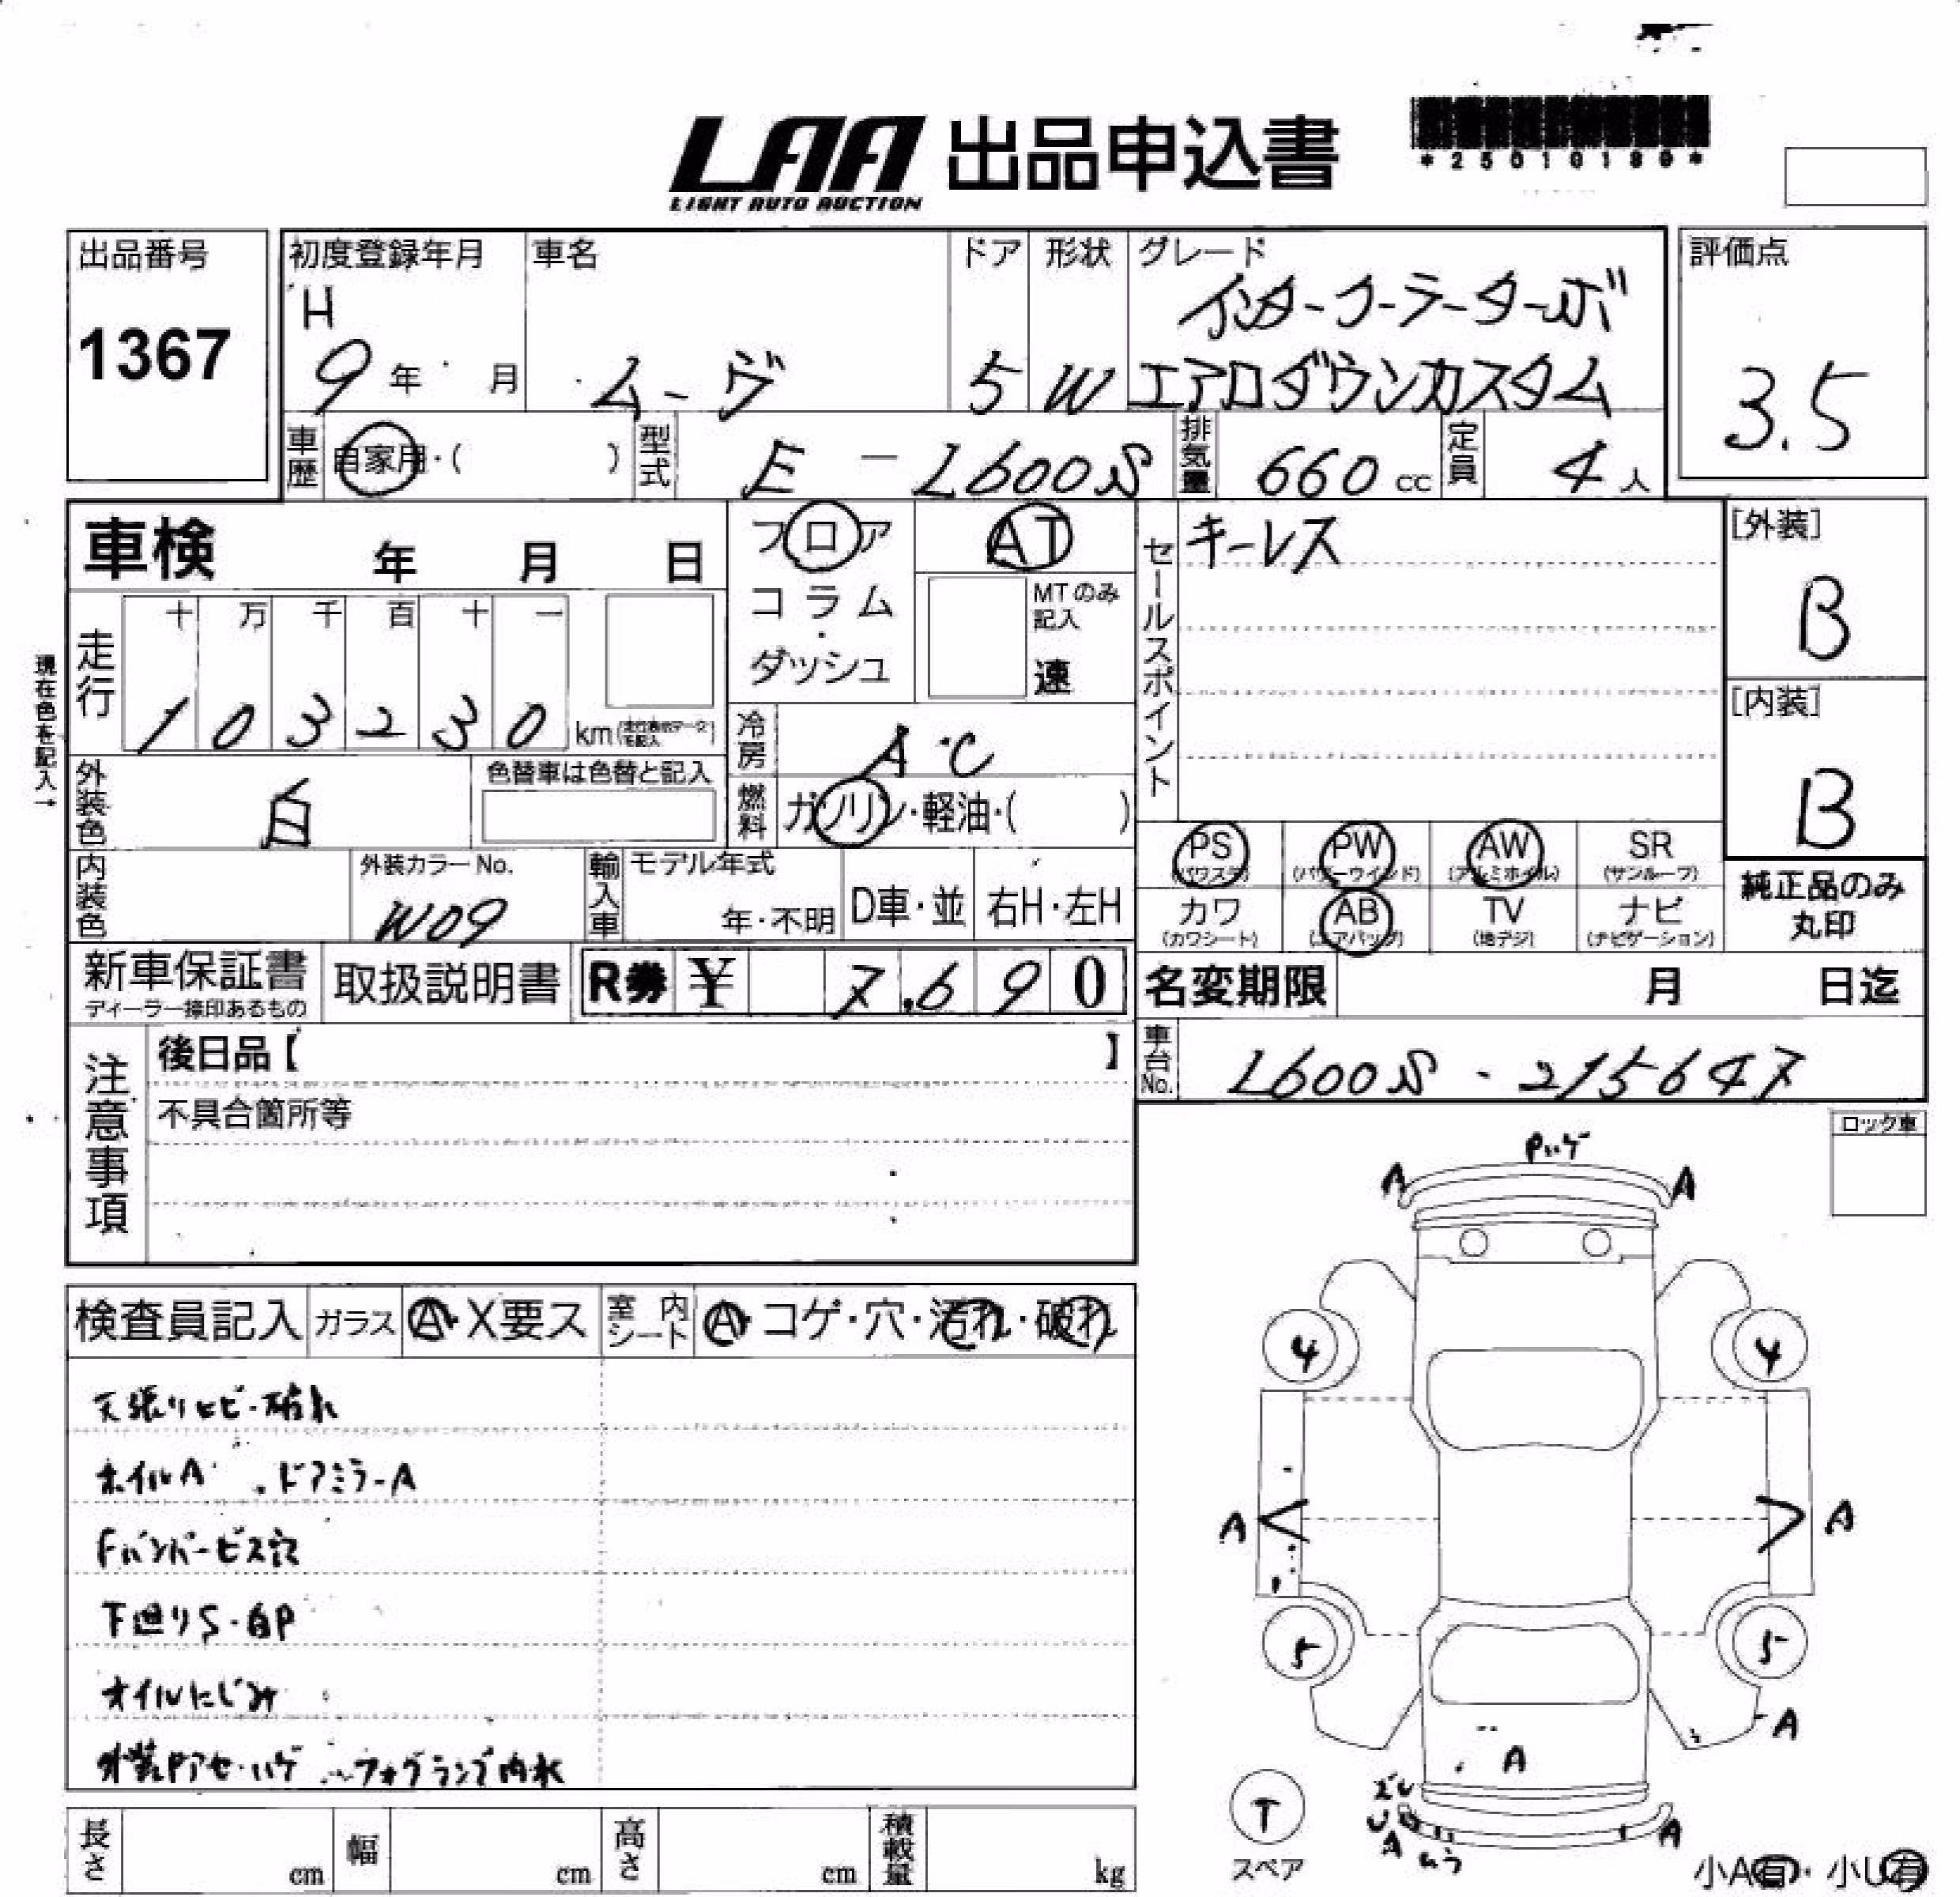 LAA 出品申込書
LIGHT AUTO AUCTION
*25010180*
出品番号
1367
初度登録年月
H
9年 月
車名
ムーヴ
ドア
5
形状
W
グレード
インタークーラーターボ
エアロダウンカスタム
評価点
3.5
車歴
自家用・( )
型式
E - L600S
排気量
660 cc
定員
4人
車検 年 月 日
フロア
コラム
・
ダッシュ
AT
MTのみ
記入
速
セールスポイント
キーレス
[外装]
B
[内装]
B
現在色を記入→
走行
十 万 千 百 十 一
1 0 3 2 3 0 km
冷房
A・C
外装色
白
色替車は色替と記入
燃料
ガソリン・軽油・( )
内装色
外装カラーNo.
W09
輸入車
モデル年式
年・不明
D車・並
右H・左H
PS
(パワステ)
PW
(パワーウインド)
AW
(アルミホイル)
SR
(サンルーフ)
カワ
(カワシート)
AB
(エアバッグ)
TV
(地デジ)
ナビ
(ナビゲーション)
純正品のみ
丸印
新車保証書
ディーラー捺印あるもの
取扱説明書
R券 ¥ 7.690
名変期限 月 日迄
車台No.
L600S - 215647
注意事項
後日品【 】
不具合箇所等
ロック車
検査員記入
ガラス
A・X要ス
室内シート
A・コゲ・穴・汚れ・破れ
天張りヒビ・破れ
ホイルA ・ドアミラーA
Fバンパービス穴
下廻りS・白P
オイルにじみ
外装Pアセ・ハゲ フォグランプ内水
Pハゲ
A
A
4
4
A
A
5
5
A
A
T
スペア
ズレ
U
A
A
小A有・小U有
長さ cm
幅 cm
高さ cm
積載量 kg